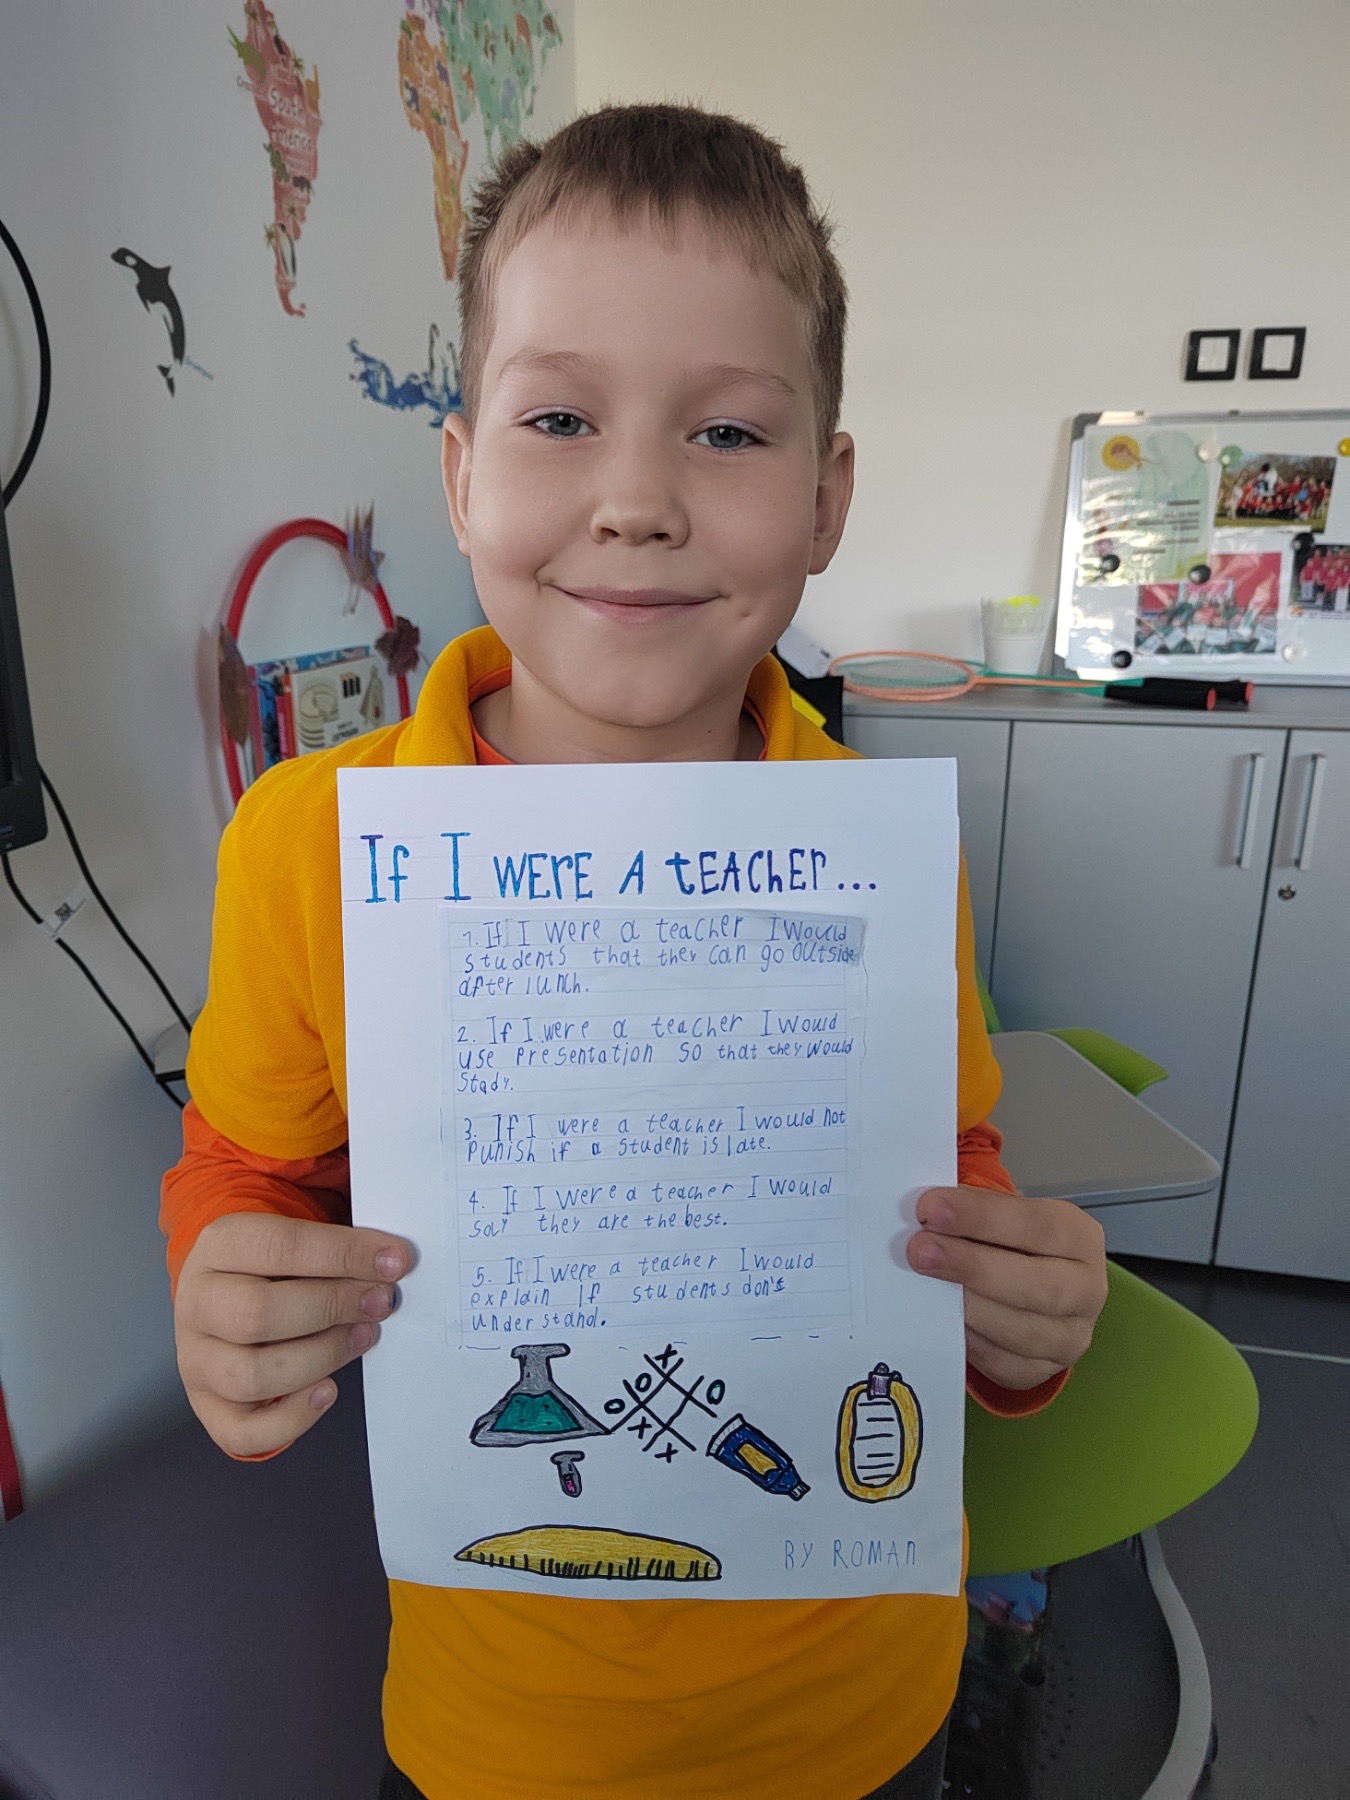 South
America
If I WERE A tEACHER...
1. If I were a teacher I would
students that they can go outside
after lunch.
2. If I were a teacher I would
use presentation so that they would
stady.
3. If I were a teacher I would not
punish if a student is late.
4. If I were a teacher I would
say they are the best.
5. If I were a teacher I would
explain If students don't
understand.
X
O O
O X
X
BY ROMAN